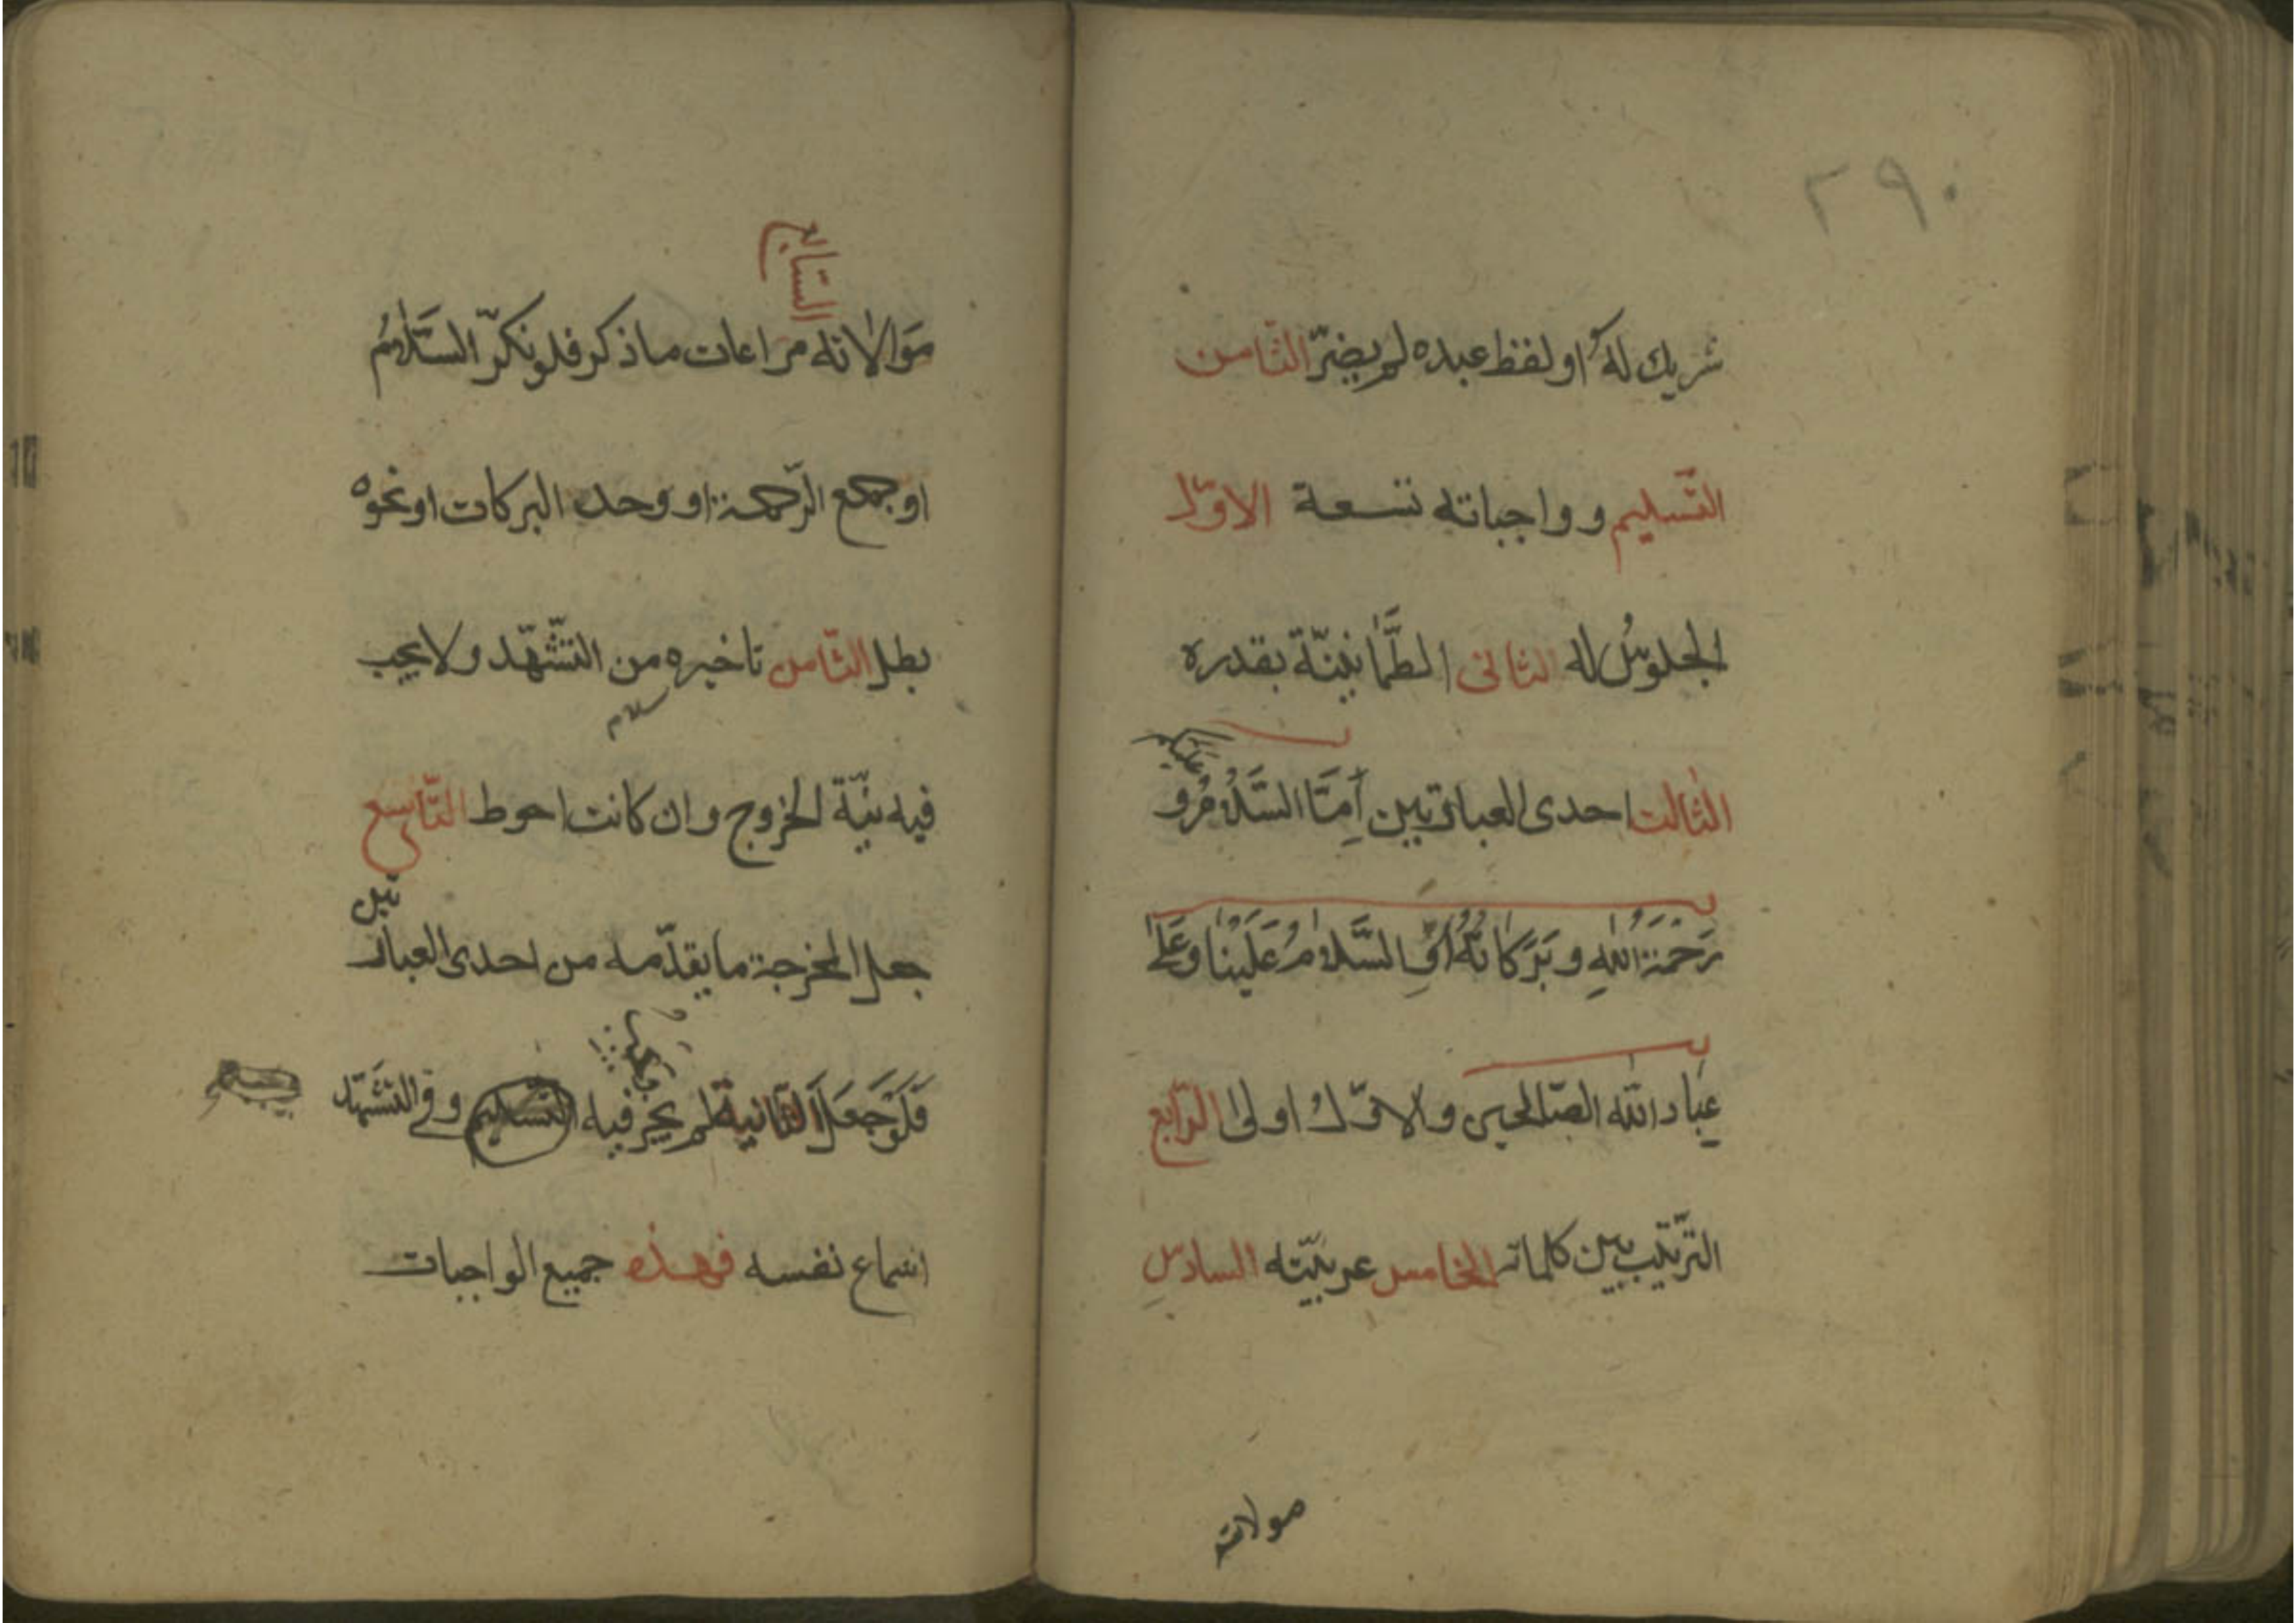 ٢٩٠
شريك له او لفظ عبده لم يضرّ الثامن
التّسليم و واجباته تسعة الاوّل
الجلوسُ له الثانى الطّمأنينّة بقدره
الثالث احدى العبارتين اِمّا السَّلامُ عليكم و
رَحْمَةُ اللهِ و بَرَكاتُهُ اَوِ السَّلامُ عَلَيْنا وَعَلى
عِبادِ الله الصّالحين والاوّل اولى الرّابع
التّرتيب بين كلماته الخامس عربيّته السادس
موالاته
السّابع
مَوالاته مراعات ما ذكر فلو نكرّ السَّلامُ
او جمع الرّحمة او وحد البركات او نحوه
بطل الثّامن تاخيره من التّشهّد ولا يجب
سلام
فيه نيّة الخروج وان كانت احوط التّاسع
جعل المخرجة ما يقدّمه من احدى العبارتين
فَلَوْ جَعَلَ الثّانية لم يجز فيه التسليم و فى التشَهّد
اسماع نفسه فهذه جميع الواجبات